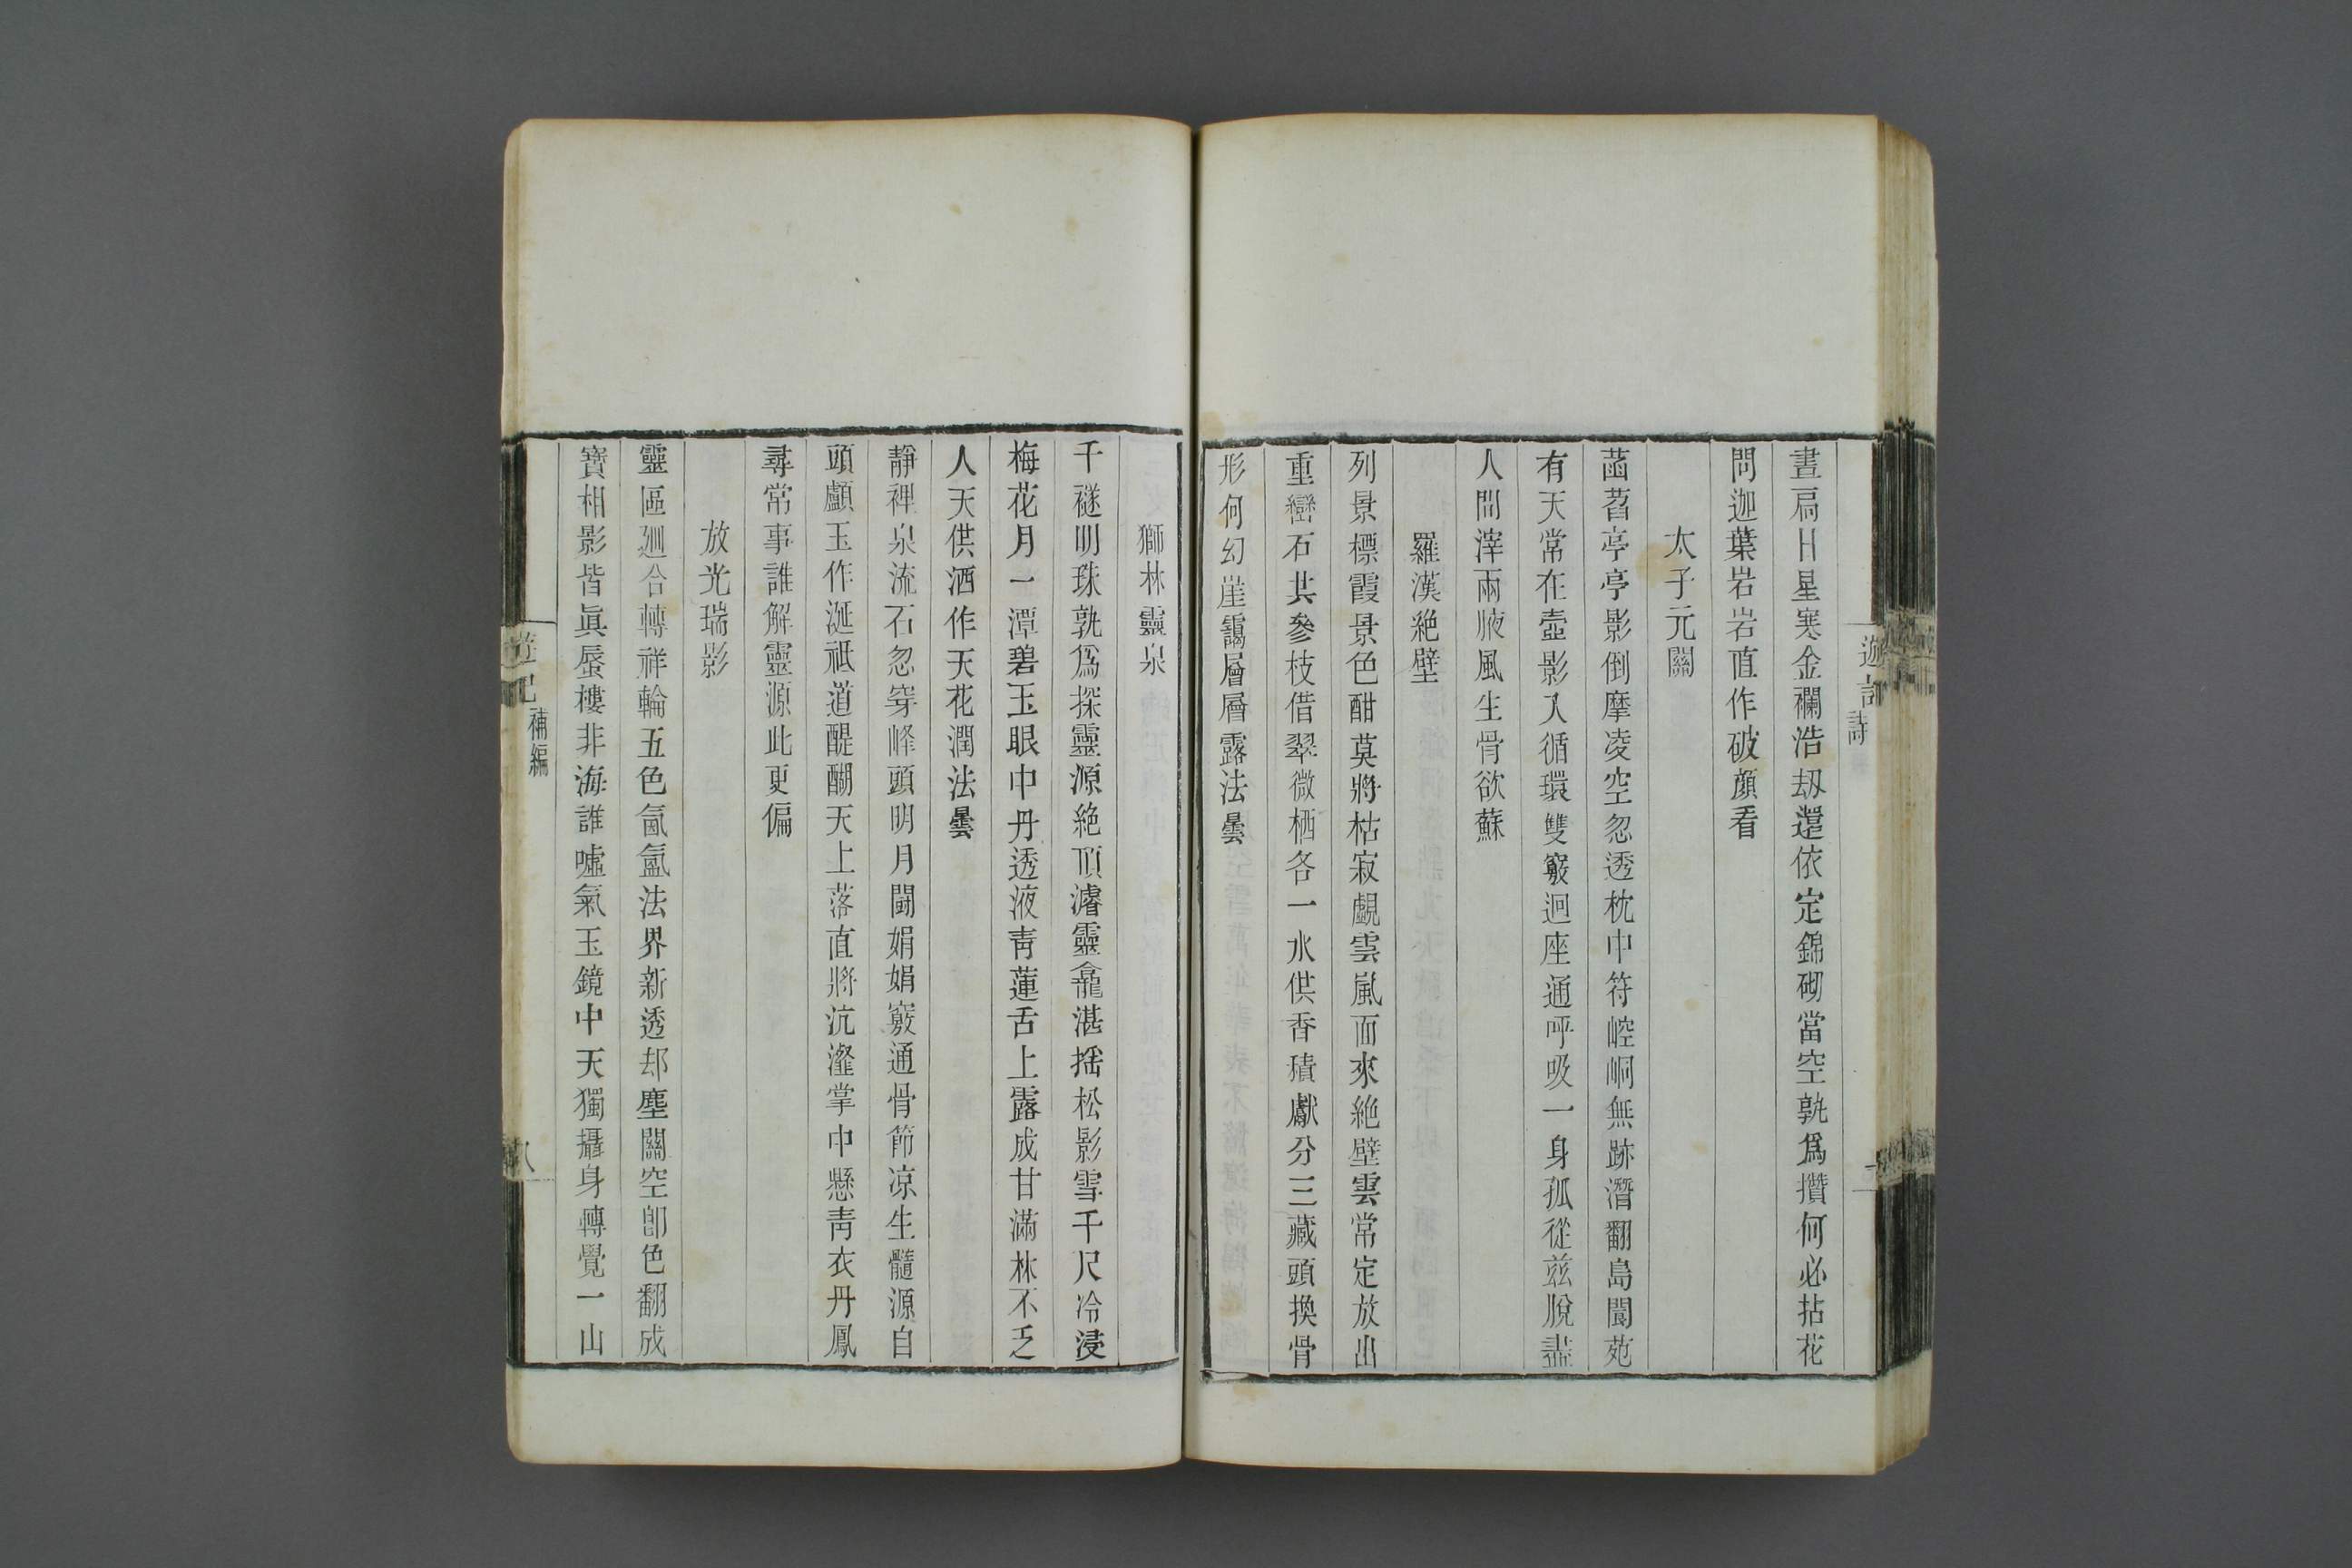 晝扃日星寒金襴浩刼還依定錦砌當空孰爲攢何必拈花
問迦葉岩岩直作破顏看
太子元關
菡萏亭亭影倒摩凌空忽透枕中符崆峒無跡潛翻島閬苑
有天常在壺影入循環雙竅迥座通呼吸一身孤從兹脫盡
人間滓兩腋風生骨欲蘇
羅漢絶壁
列景標霞景色酣莫將枯寂覷雲嵐而來絶壁雲常定放出
重巒石共參枝借翠微栖各一水供香積獻分三藏頭換骨
形何幻崖靄層層露法曇
獅林靈泉
千襚明珠孰爲探靈源絶頂濬靈龕湛摇松影雪千尺冷浸
梅花月一潭碧玉眼中丹透液靑蓮舌上露成甘滿林不乏
人天供洒作天花潤法曇
靜裡泉流石忽穿峰頭明月闘娟娟竅通骨節凉生髓源自
頭顱玉作涎祇道醍醐天上落直將沆瀣掌中懸靑衣丹鳳
尋常事誰解靈源此更偏
放光瑞影
靈區廻合轉祥輪五色氤氲法界新透却塵關空卽色翻成
寶相影皆眞蜃樓非海誰噓氣玉鏡中天獨攝身轉覺一山
補編
八
詩